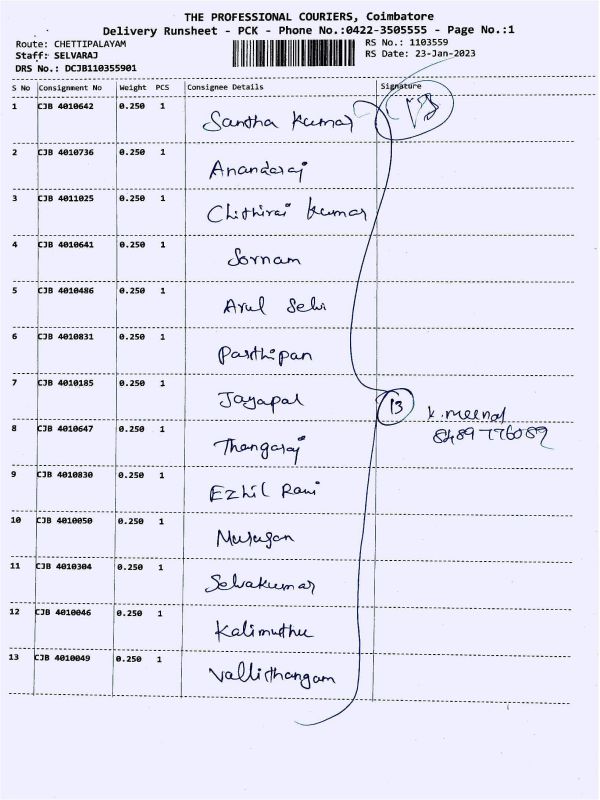 THE PROFESSIONAL COURIERS, Coimbatore
Delivery Runsheet - PCK - Phone No.:0422-3505555 - Page No.:1
Route: CHETTIPALAYAM RS No.: 1103559
Staff: SELVARAJ RS Date: 23-Jan-2023
DRS No.: DCJB110355901
S No Consignment No Weight PCS Consignee Details Signature
1 CJB 4010642 0.250 1 Santha Kumar
2 CJB 4010736 0.250 1 Anandaraj
3 CJB 4011025 0.250 1 Chithirai Kumar
4 CJB 4010641 0.250 1 Sornam
5 CJB 4010486 0.250 1 Arul Selvi
6 CJB 4010831 0.250 1 Parthipan
7 CJB 4010185 0.250 1 Jayapal 13
K. Meenal
8 CJB 4010647 0.250 1 Thangaraj 8489776089
9 CJB 4010830 0.250 1 Ezhil Rani
10 CJB 4010050 0.250 1 Murugan
11 CJB 4010304 0.250 1 Selvakumar
12 CJB 4010046 0.250 1 Kalimuthu
13 CJB 4010049 0.250 1 Vallithangam